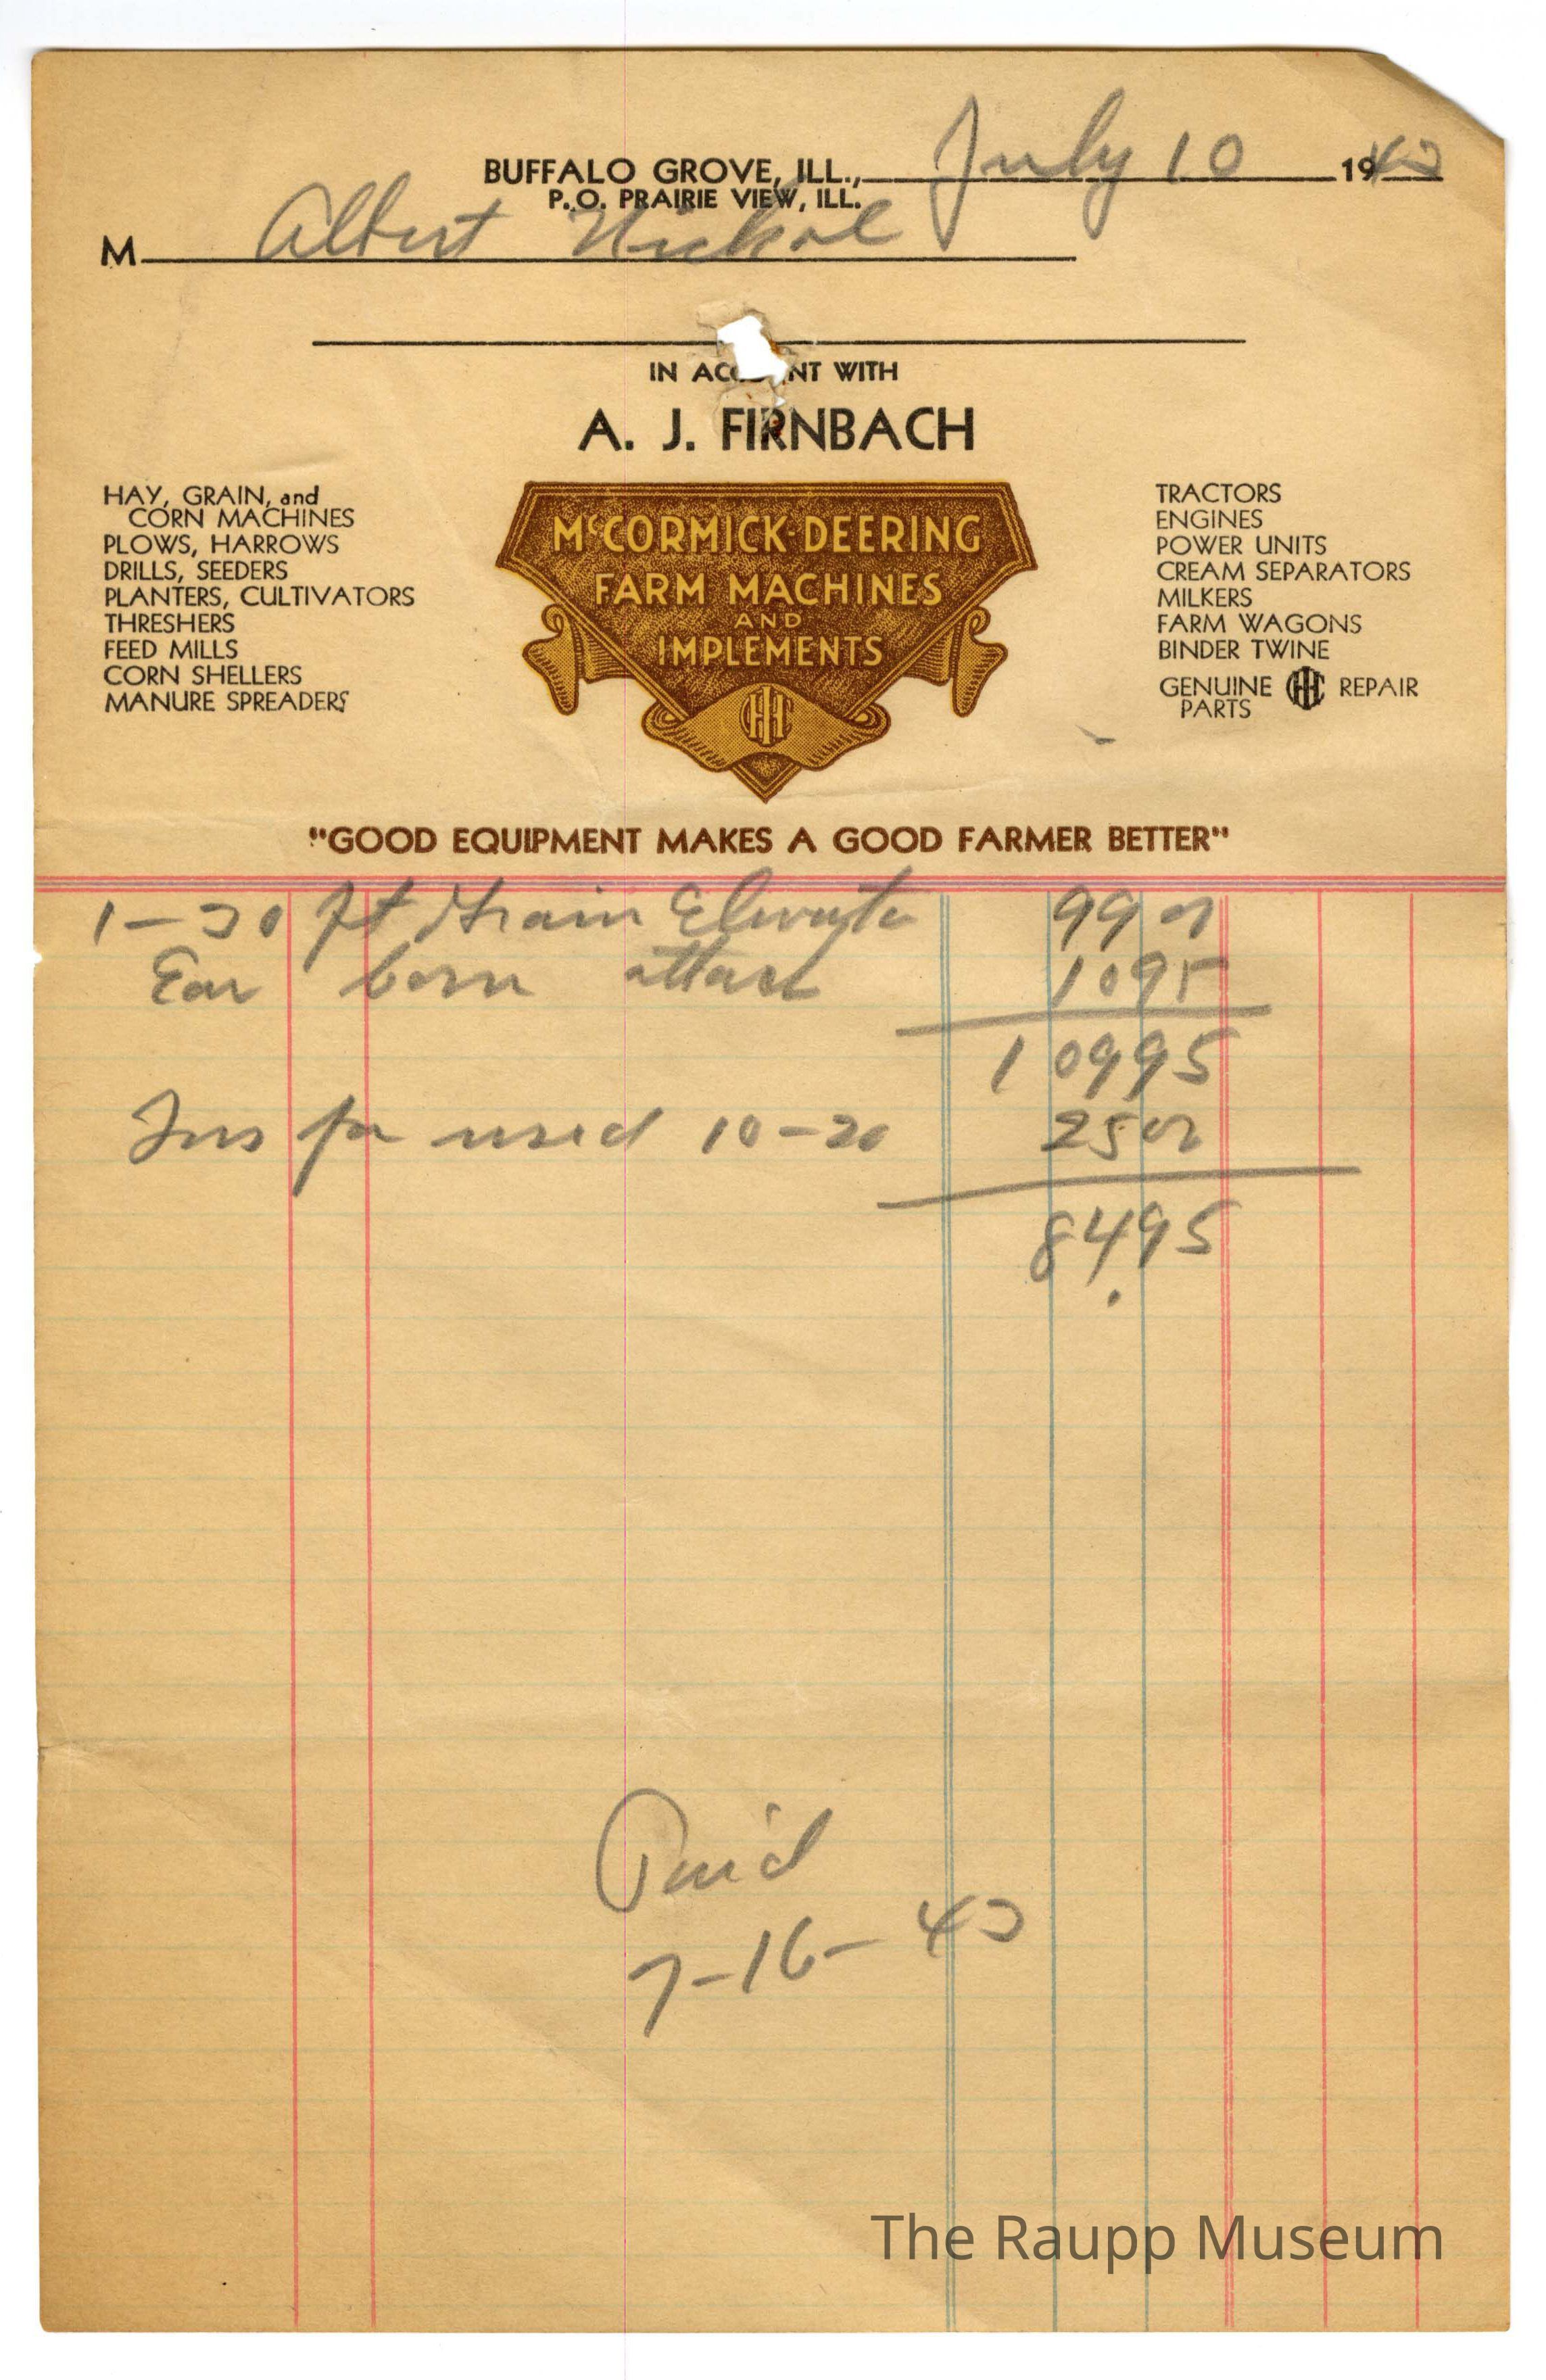 BUFFALO GROVE, ILL., July 10 1943
P.O. PRAIRIE VIEW, ILL.
M Albert
IN ACCOUNT WITH
A. J. FIRNBACH
HAY, GRAIN, and
CORN MACHINES
PLOWS, HARROWS
DRILLS, SEEDERS
PLANTERS, CULTIVATORS
THRESHERS
FEED MILLS
CORN SHELLERS
MANURE SPREADERS
McCORMICK-DEERING
FARM MACHINES
AND
IMPLEMENTS
IHC
TRACTORS
ENGINES
POWER UNITS
CREAM SEPARATORS
MILKERS
FARM WAGONS
BINDER TWINE
GENUINE IHC REPAIR
PARTS
"GOOD EQUIPMENT MAKES A GOOD FARMER BETTER"
ft Grain Elevator 99 00
Ear Corn attach 10 95
109 95
for used 10-20 25 00
84.95
Paid
7-16-43
The Raupp Museum